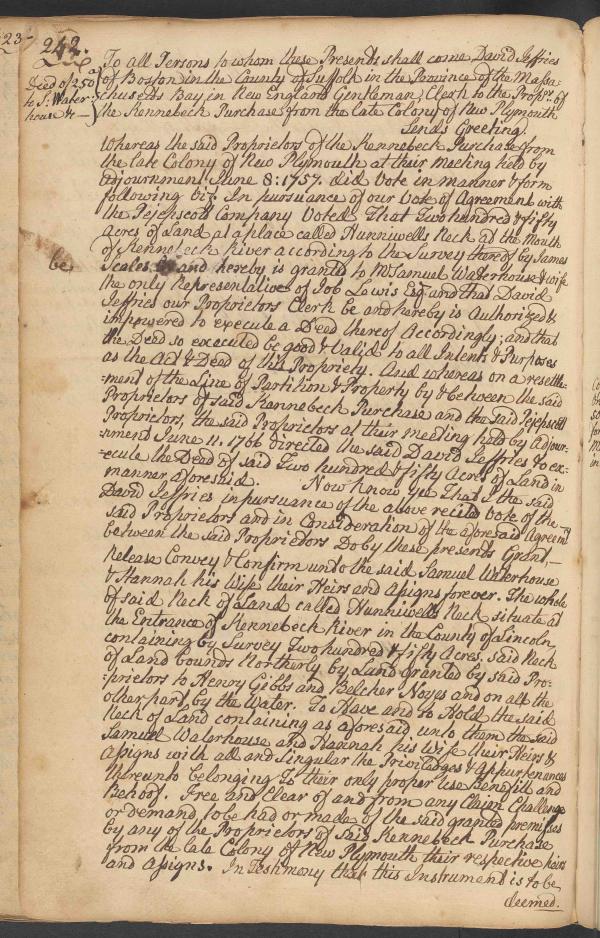 23-
242.
Deed of 250 a
to S: Water:
house &c —
To all Persons to whom these Presents shall come David Jeffries
of Boston in the County of Suffolk in the Province of the Massa:
chusetts Bay in New England Gentleman, Clerk to the Propsrs. of
the Kennebeck Purchase from the late Colony of New Plymouth
Sends Greeting.
Whereas the said Proprietors of the Kennebeck Purchase from
the late Colony of New Plymouth at their meeting held by
adjournment June 8: 1757. did Vote in manner & form
following viz: In pursuance of our Vote of Agreement with
the Pejepscott Company Voted That Two hundred & fifty
acres of Land at a place called Hunniwells Neck at the Mouth
of Kennebeck River according to the Survey thereof by James
be
Scales and hereby is granted to Mr Samuel Waterhouse & wife
the only Representative of Job Lewis Esqr. and that David
Jeffries our Proprietors Clerk be and hereby is Authorized &
impowered to execute a Deed thereof Accordingly; and that
the Deed so executed be good & Valid to all Intents & Purposes
as the Act & Deed of this Propriety. And whereas on a resettle=
=ment of the Line of Partition & Property by & between the said
Proprietors of said Kennebeck Purchase and the said Pejepscott
Proprietors, the said Proprietors at their meeting held by Adjour=
=nment June 11. 1766 directed the said David Jeffries to ex=
=ecute the Deed of said Two hundred & fifty Acres of Land in
manner aforesaid. Now know ye That I the said
David Jeffries in pursuance of the above recited Vote of the
said Proprietors and in Consideration of the aforesaid Agreemt.
between the said Proprietors Do by these presents Grant,
Release Convey & Confirm unto the said Samuel Waterhouse
& Hannah his Wife their Heirs and Assigns forever. The whole
of said Neck of Land called Hunniwells Neck situate at
the Entrance of Kennebeck River in the County of Lincoln
containing by Survey Two hundred & fifty Acres, said Neck
of Land bounds Northerly by Land granted by said Pro=
=prietors to Henry Gibbs and Belcher Noyes and on all the
other part by the Water. To Have and to Hold the said
Neck of Land containing as aforesaid unto them the said
Samuel Waterhouse and Hannah his Wife their Heirs &
Assigns with all and Singular the Priviledges & Appurtenances
thereunto belonging To their only proper Use Benefit and
Behoof. Free and Clear of and from any Claim Challenge
or Demand to be had or made of the said granted premisses
by any of the Proprietors of said Kennebeck Purchase
from the late Colony of New Plymouth their respective heirs
and Assigns. In Testimony that this Instrument is to be
deemed.